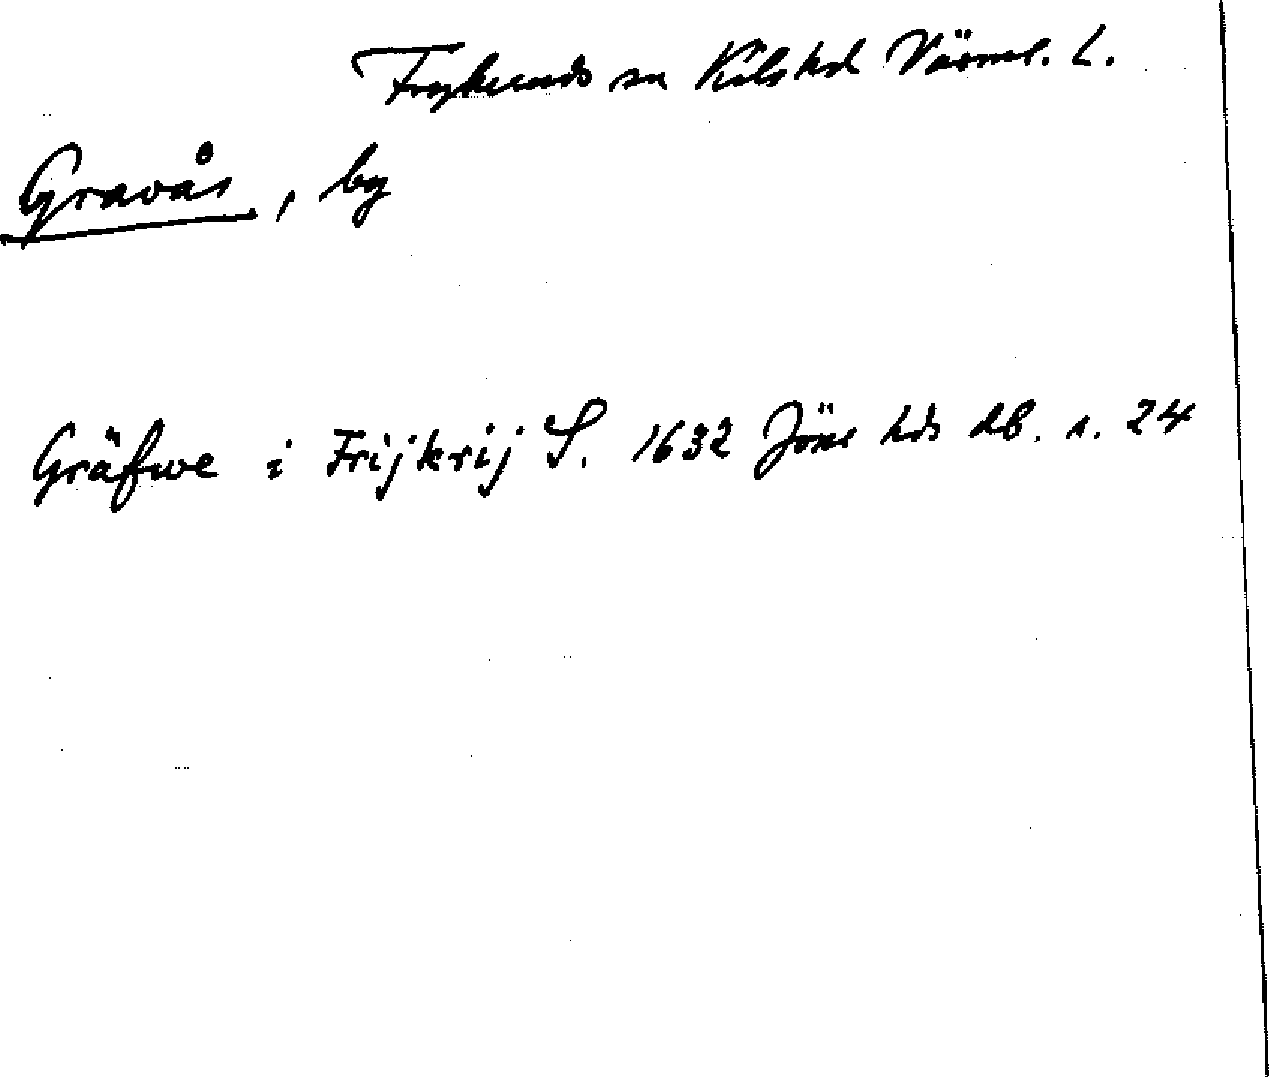 Frykeruds sn Kils hd Värml. L.
Gravås, by
Gräfwe i Frijkrij S. 1632 Jöns hds db. s. 24